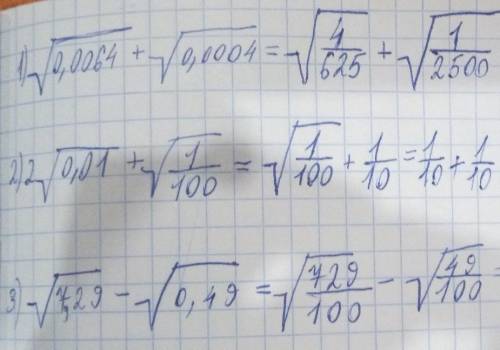 1) √0,0064 + √0,0004 = √4/625 + √1/2500
2) 2√0,01 + √1/100 = √1/100 + 1/10 = 1/10 + 1/10
3) √7,29 - √0,49 = √729/100 - √49/100 =